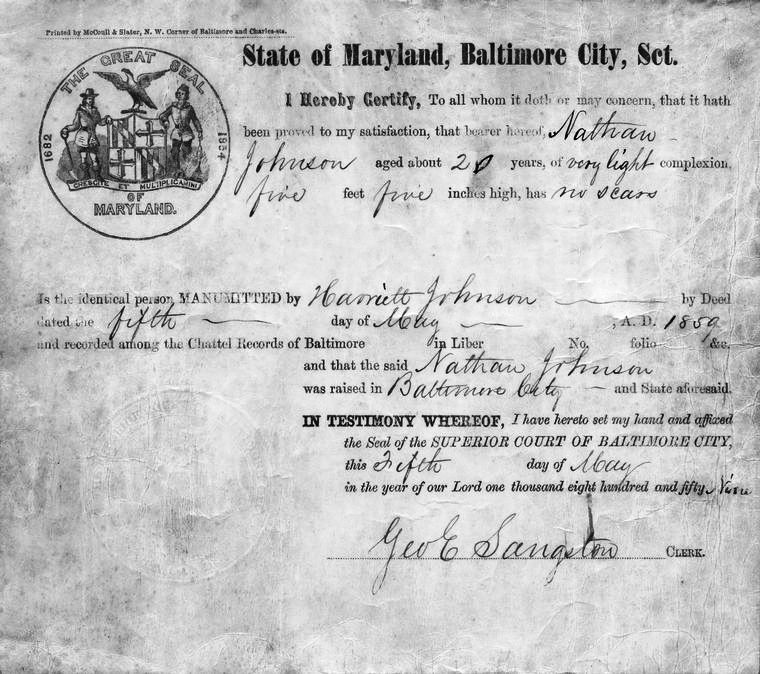 Printed by McCoull & Slater, N. W. Corner of Baltimore and Charles-sts.
THE GREAT SEAL
OF
MARYLAND.
1632
1854
CRESCITE ET MULTIPLICAMINI
State of Maryland, Baltimore City, Sct.
I Hereby Certify, To all whom it doth or may concern, that it hath
been proved to my satisfaction, that bearer hereof, Nathan
Johnson aged about 20 years, of very light complexion,
five feet five inches high, has no scars
Is the identical person MANUMITTED by Harriett Johnson by Deed
dated the fifth day of May , A. D. 1859
and recorded among the Chattel Records of Baltimore in Liber No. folio &c.
and that the said Nathan Johnson
was raised in Baltimore City and State aforesaid.
IN TESTIMONY WHEREOF, I have hereto set my hand and affixed
the Seal of the SUPERIOR COURT OF BALTIMORE CITY,
this Fifth day of May
in the year of our Lord one thousand eight hundred and fifty Nine
Geo E Sangston CLERK.